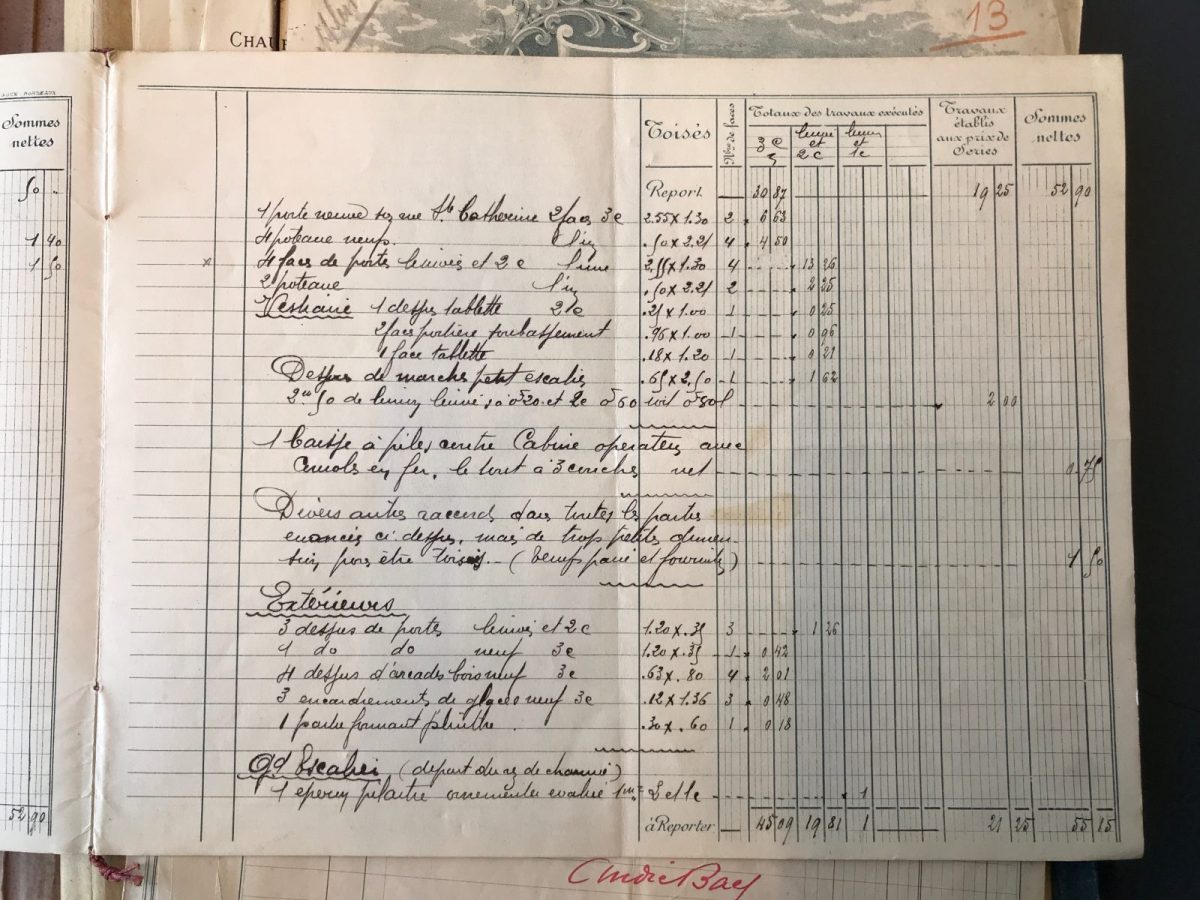 CHAUF
13
Sommes nettes
50 -
1 40
1 50
52 90
Toisés
Nbre de faces
Totaux des travaux exécutés
3 c
lessivé et 2 c
et 1c
Travaux établis aux prix de Séries
Sommes nettes
Report — 30 87 — 19 25 52 90
1 porte neuve rue Ste Catherine 2 faces 3c 2.55 x 1.30 2 6 63
4 poteaux neufs. 50 x 2.25 4 4 50
x 4 faces de portes lessivés et 2 c 2.55 x 1.30 4 13 26
2 poteaux .50 x 2.25 2 2 25
Vestiaire 1 dessus tablette 2c .25 x 1.00 1 0 25
2 faces portière soubassement .96 x 1.00 1 0 96
1 face tablette .18 x 1.20 1 0 21
Dessus de marches petit escalier .65 x 2.50 1 1 62
2 50 de et 2c 0 60 soit 0 80 2 00
1 Caisse à piles contre Cabine opérateur avec
en fer, le tout à 3 couches net 0 75
Divers autres raccords dans toutes les parties
énoncées ci dessus, mais de trop petites dimen-
sions pour être toisés. - ( ) 1 50
Extérieurs
3 dessus de portes lessivés et 2c 1.20 x .35 3 1 26
1 do do neuf 3c 1.20 x .35 1 0 42
4 dessus d'arcades bois neuf 3c .63 x .80 4 2 01
3 encadrements de glaces neuf 3c .12 x 1.36 3 0 48
1 partie formant plinthe .30 x .60 1 0 18
Gd Escalier (départ du rez de chaussée)
1 ornementer évalué 1m L et 1c 1
à Reporter — 45 09 19 81 1 — 21 25 55 15